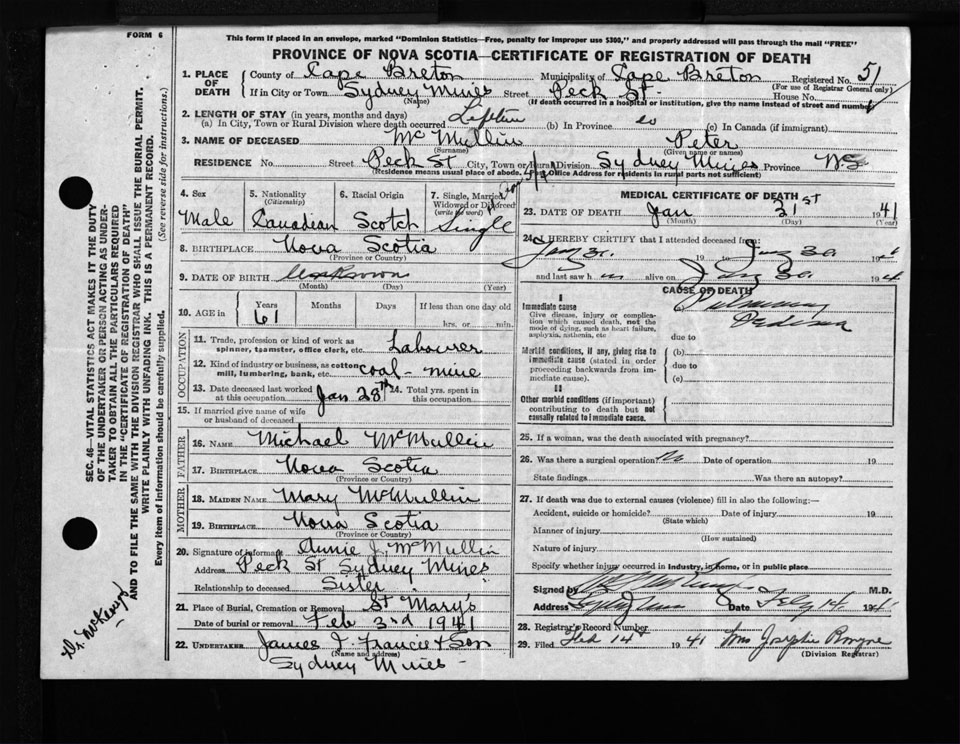 FORM 6
This form if placed in an envelope, marked "Dominion Statistics—Free, penalty for improper use $300," and properly addressed will pass through the mail "FREE"
PROVINCE OF NOVA SCOTIA—CERTIFICATE OF REGISTRATION OF DEATH
1. PLACE OF DEATH County of Cape Breton Municipality of Cape Breton Registered No. 51
(For use of Registrar General only)
If in City or Town Sydney Mines Street Peck St. House No.
(Name) (If death occurred in a hospital or institution, give the name instead of street and number)
2. LENGTH OF STAY (in years, months and days)
(a) In City, Town or Rural Division where death occurred (b) In Province (c) In Canada (if immigrant)
3. NAME OF DECEASED McMullin Peter
(Surname) (Given name or names)
RESIDENCE No. Street Peck St City, Town or Rural Division Sydney Mines Province NS
(Residence means usual place of abode. Post Office Address for residents in rural parts not sufficient)
4. Sex 5. Nationality (Citizenship) 6. Racial Origin 7. Single, Married, Widowed or Divorced (write the word)
Male Canadian Scotch Single
8. BIRTHPLACE Nova Scotia
(Province or Country)
9. DATE OF BIRTH Unknown
(Month) (Day) (Year)
10. AGE in Years Months Days If less than one day old
61 hrs. or min.
OCCUPATION
11. Trade, profession or kind of work as spinner, teamster, office clerk, etc. Labourer
12. Kind of industry or business, as cotton mill, lumbering, bank, etc. coal-mine
13. Date deceased last worked at this occupation Jan 28th 14. Total yrs. spent in this occupation
15. If married give name of wife or husband of deceased
FATHER
16. NAME Michael McMullin
17. BIRTHPLACE Nova Scotia
(Province or Country)
MOTHER
18. MAIDEN NAME Mary McMullin
19. BIRTHPLACE Nova Scotia
(Province or Country)
20. Signature of informant Annie J. McMullin
Address Peck St Sydney Mines
Relationship to deceased Sister
21. Place of Burial, Cremation or Removal St Mary's
Date of burial or removal Feb 3rd 1941
22. UNDERTAKER James J. Francis & Son
(Name and address)
Sydney Mines
MEDICAL CERTIFICATE OF DEATH
23. DATE OF DEATH Jan 31st 1941
(Month) (Day) (Year)
24. I HEREBY CERTIFY that I attended deceased from:
19 to Jan 30 19
and last saw h alive on Jan 30 19
CAUSE OF DEATH
I
Immediate cause
Give disease, injury or complication which caused death, not the mode of dying, such as heart failure, asphyxia, asthenia, etc
Pulmonary
Oedema
due to
Morbid conditions, if any, giving rise to immediate cause (stated in order proceeding backwards from immediate cause).
(b)
due to
(c)
II
Other morbid conditions (if important) contributing to death but not causally related to immediate cause.
25. If a woman, was the death associated with pregnancy?
26. Was there a surgical operation? No Date of operation 19
State findings Was there an autopsy?
27. If death was due to external causes (violence) fill in also the following:—
Accident, suicide or homicide? Date of injury 19
(State which)
Manner of injury
(How sustained)
Nature of injury
Specify whether injury occurred in industry, in home, or in public place
Signed by M.D.
Address Date Feb 14 1941
28. Registrar's Record Number
29. Filed Feb 14th 1941 Mrs Josephine
(Division Registrar)
SEC. 46—VITAL STATISTICS ACT MAKES IT THE DUTY OF THE UNDERTAKER OR PERSON ACTING AS UNDERTAKER TO OBTAIN ALL THE PARTICULARS REQUIRED IN THE "CERTIFICATE OF REGISTRATION OF DEATH" AND TO FILE THE SAME WITH THE DIVISION REGISTRAR WHO SHALL ISSUE THE BURIAL PERMIT.
WRITE PLAINLY WITH UNFADING INK. THIS IS A PERMANENT RECORD.
Every item of Information should be carefully supplied. (See reverse side for instructions.)
Dr. McKenzie